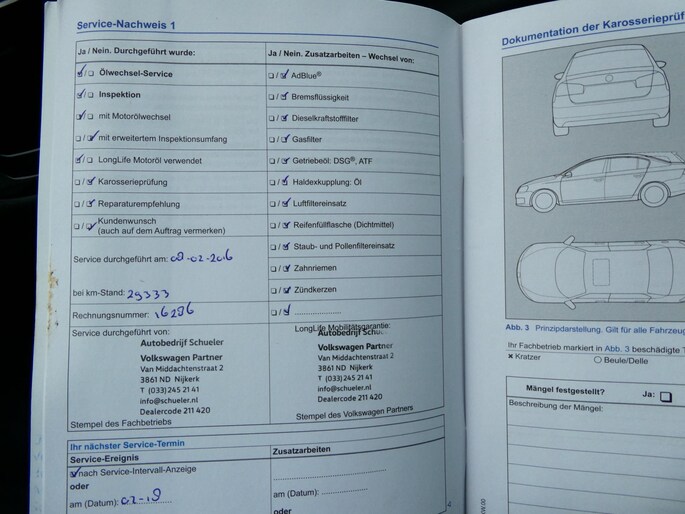 Service-Nachweis 1
Ja / Nein. Durchgeführt wurde:
Ölwechsel-Service
Inspektion
mit Motorölwechsel
mit erweitertem Inspektionsumfang
LongLife Motoröl verwendet
Karosserieprüfung
Reparaturempfehlung
Kundenwunsch
(auch auf dem Auftrag vermerken)
Service durchgeführt am: 09-02-2016
bei km-Stand: 29333
Rechnungsnummer: 16286
Ja / Nein. Zusatzarbeiten – Wechsel von:
AdBlue®
Bremsflüssigkeit
Dieselkraftstofffilter
Gasfilter
Getriebeöl: DSG®, ATF
Haldexkupplung: Öl
Luftfiltereinsatz
Reifenfüllflasche (Dichtmittel)
Staub- und Pollenfiltereinsatz
Zahnriemen
Zündkerzen
Service durchgeführt von:
Autobedrijf Schueler
Volkswagen Partner
Van Middachtenstraat 2
3861 ND Nijkerk
T (033) 245 21 41
info@schueler.nl
Dealercode 211 420
Stempel des Fachbetriebs
LongLife Mobilitätsgarantie:
Autobedrijf Schueler
Volkswagen Partner
Van Middachtenstraat 2
3861 ND Nijkerk
T (033) 245 21 41
info@schueler.nl
Dealercode 211 420
Stempel des Volkswagen Partners
Ihr nächster Service-Termin
Service-Ereignis
nach Service-Intervall-Anzeige
oder
am (Datum): 02-18
Zusatzarbeiten
am (Datum):
oder
Dokumentation der Karosserieprüf
Abb. 3 Prinzipdarstellung. Gilt für alle Fahrzeug
Ihr Fachbetrieb markiert in Abb. 3 beschädigte T
× Kratzer
Beule/Delle
Mängel festgestellt? Ja:
Beschreibung der Mängel: